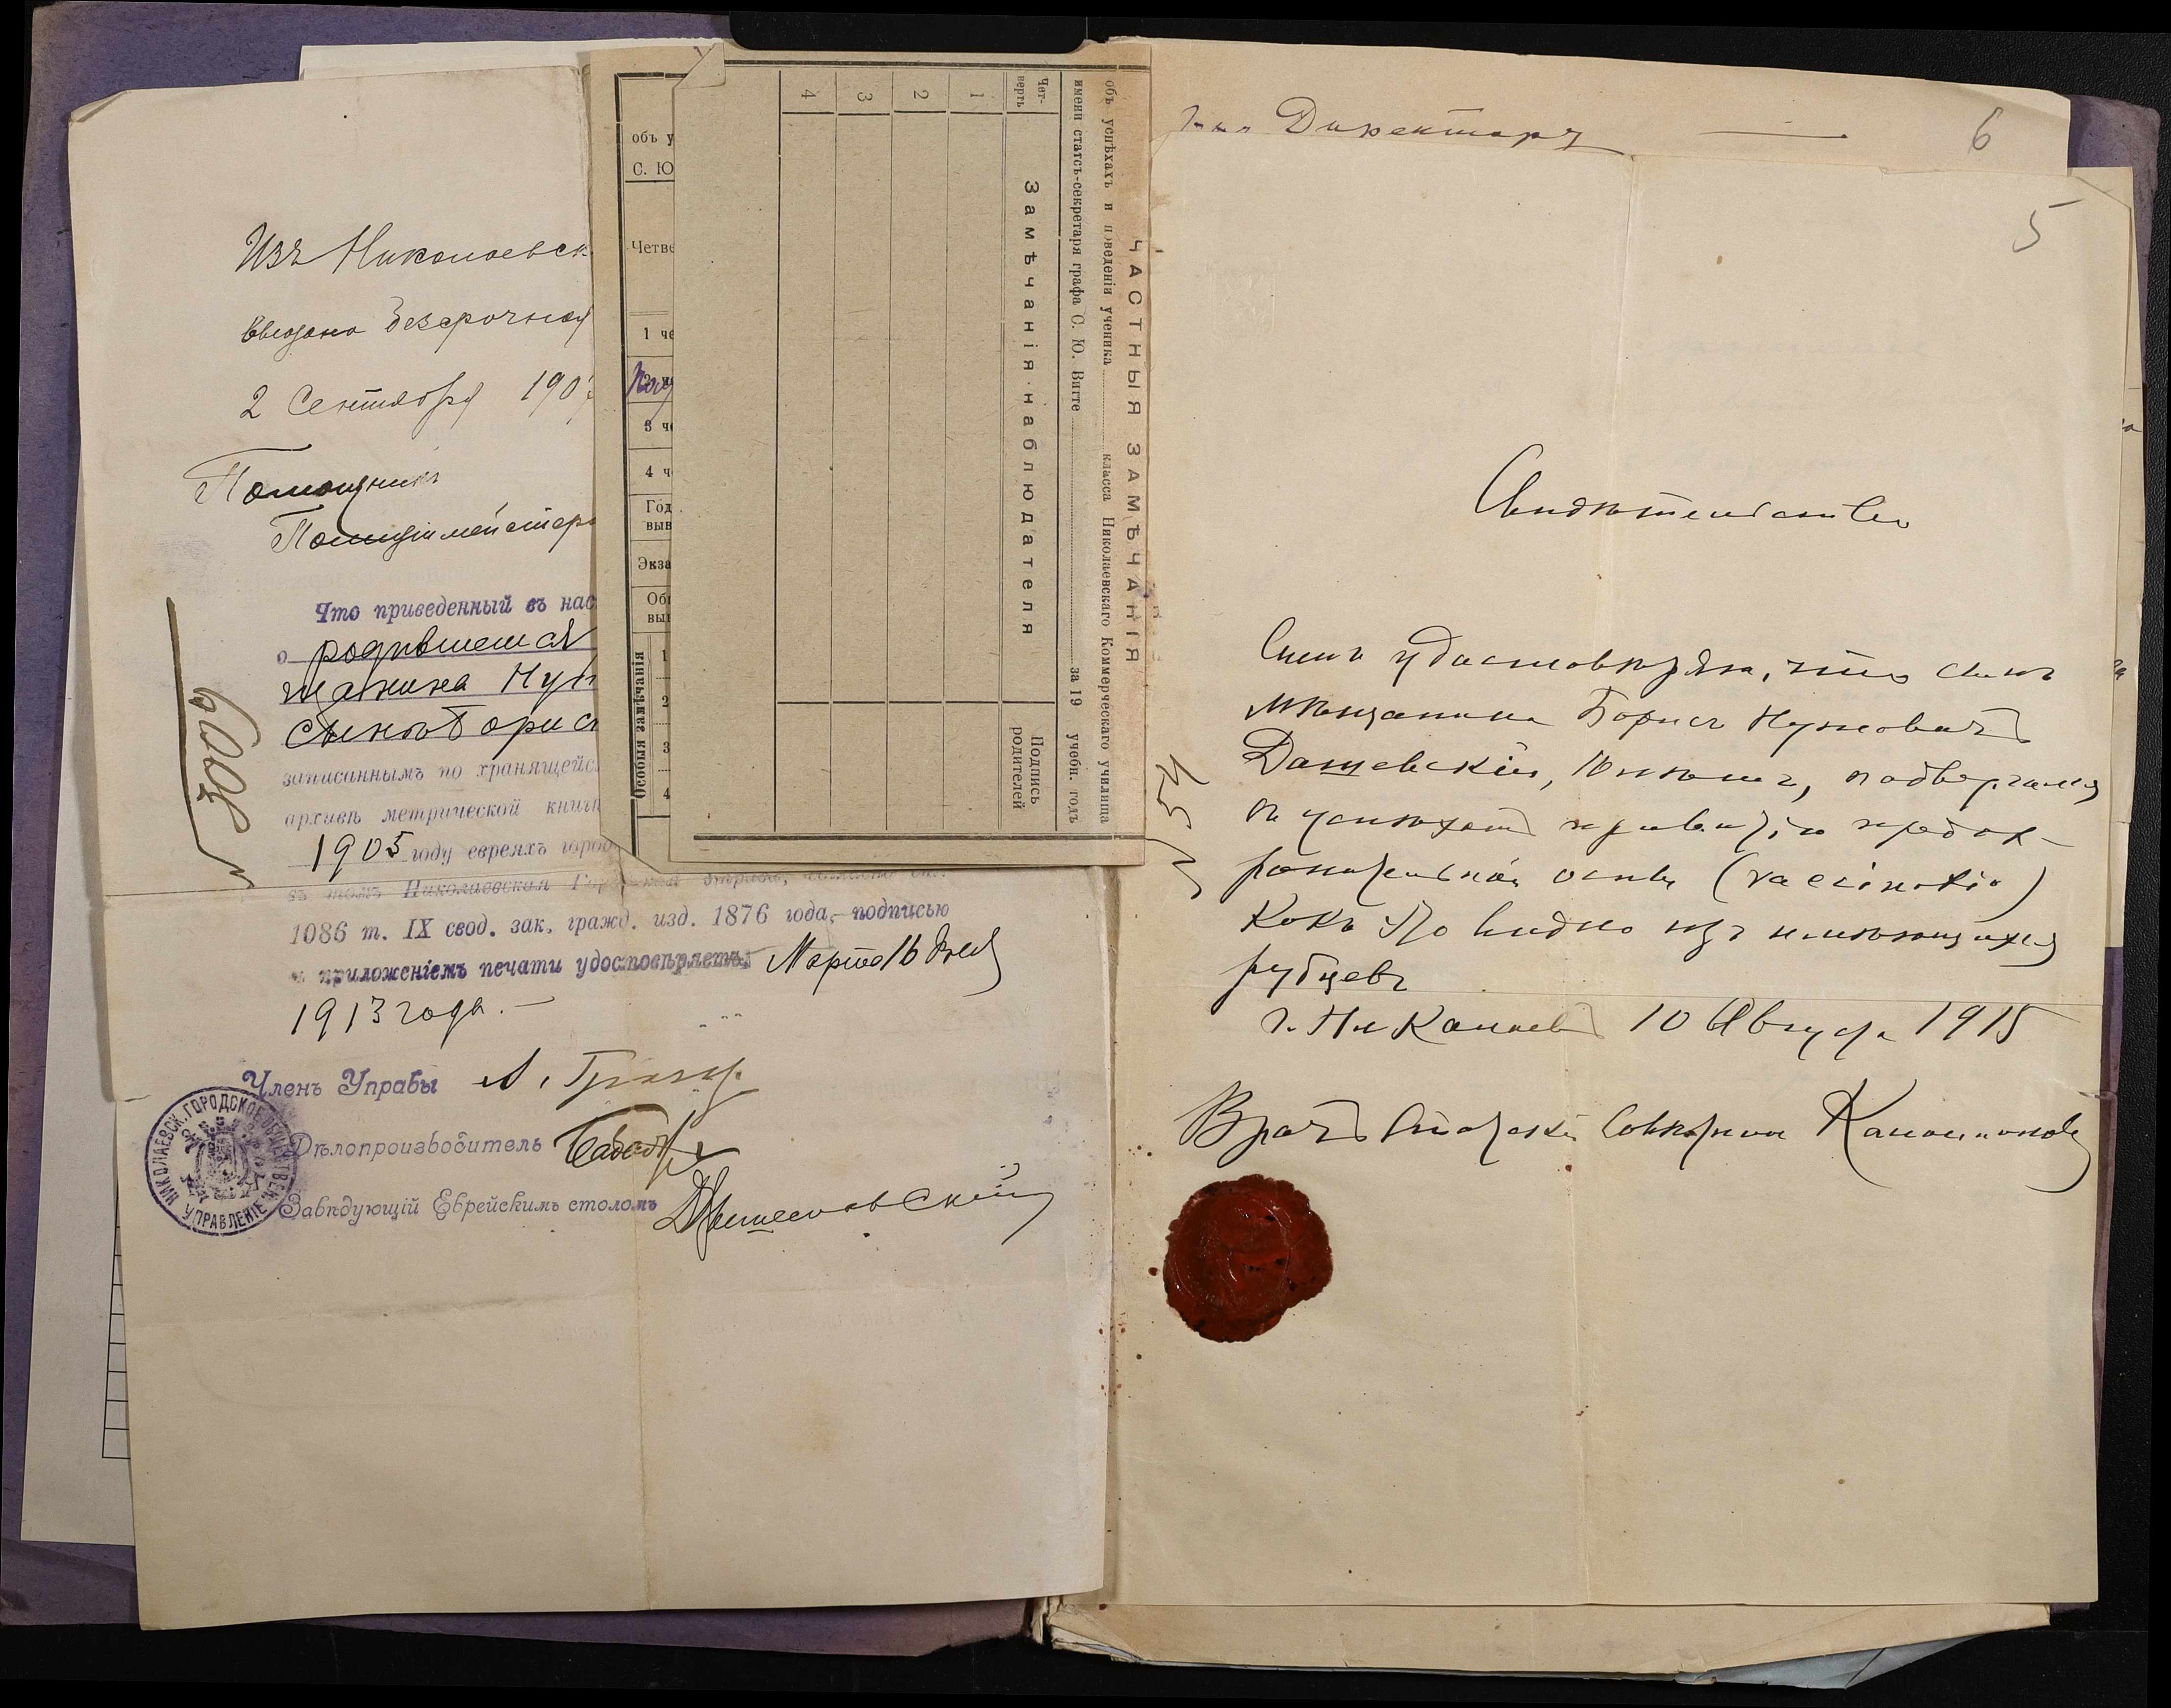 Изъ Николаевск
безсрочная
2 Сентября 190
Помощникъ
Полиціймейстера
№ 3009
Что приведенный въ нас
о родившемся
щанина Нух
сынѣ Борис
записаннымъ по хранящейс
архивѣ метрической книг
1905 году евреяхъ город
въ томъ Николаевская
1086 т. IX свод. зак. гражд. изд. 1876 года, подписью
и приложеніемъ печати удостовѣряетъ Марта 16 дня
1913 года.
Членъ Управы
Дѣлопроизводитель
Завѣдующій Еврейскимъ столомъ
НИКОЛАЕВСК. ГОРОДСКОЕ ОБЩЕСТВЕН. УПРАВЛЕНІЕ
объ у
С. Ю
Четве
1 че
2
3 че
4 ч
Год
выв
Экза
Общ
выв
Особыя замѣчанія
1
2
3
4
ЧАСТНЫЯ ЗАМѢЧАНІЯ
объ успѣхахъ и поведеніи ученика класса Николаевскаго Коммерческаго училища
имени статсъ-секретаря графа С. Ю. Витте за 19 учебн. годъ
Чет-
верть
Замѣчанія наблюдателя
Подпись
родителей
1
2
3
4
Директоръ
6
5
Свидѣтельство
Симъ удостовѣряю, что сынъ
мѣщанина Борисъ Нухимовичъ
Дашевскій, 10 лѣтъ, подвергался
съ успѣхомъ привитію предох-
ранительной оспы
какъ это видно изъ имѣющихся
рубцевъ
г. Николаевъ 10 Августа 1915
Врачъ Статскій Совѣтникъ
№ 54